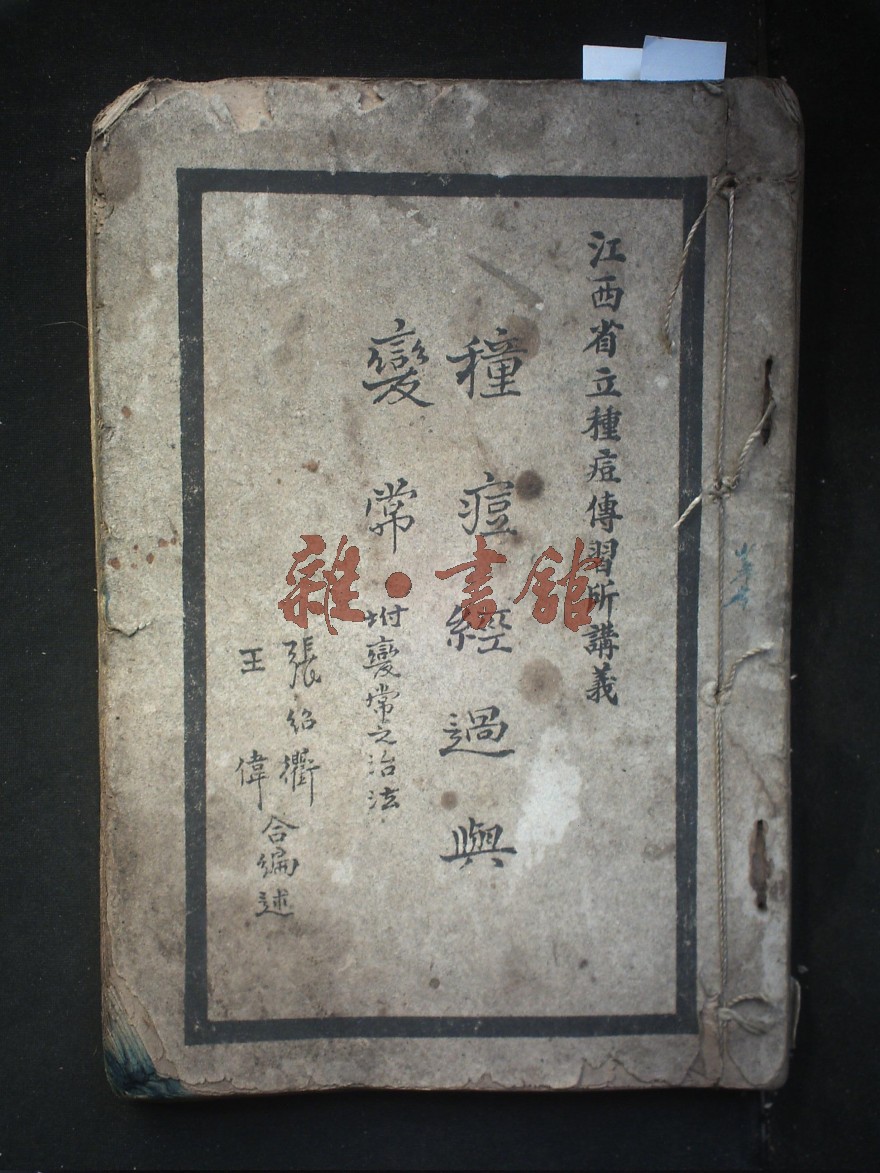 江西省立種痘傳習所講義
種痘經過與
變常 附變常之治法
張紹衢
王偉
合編述
雜·書館